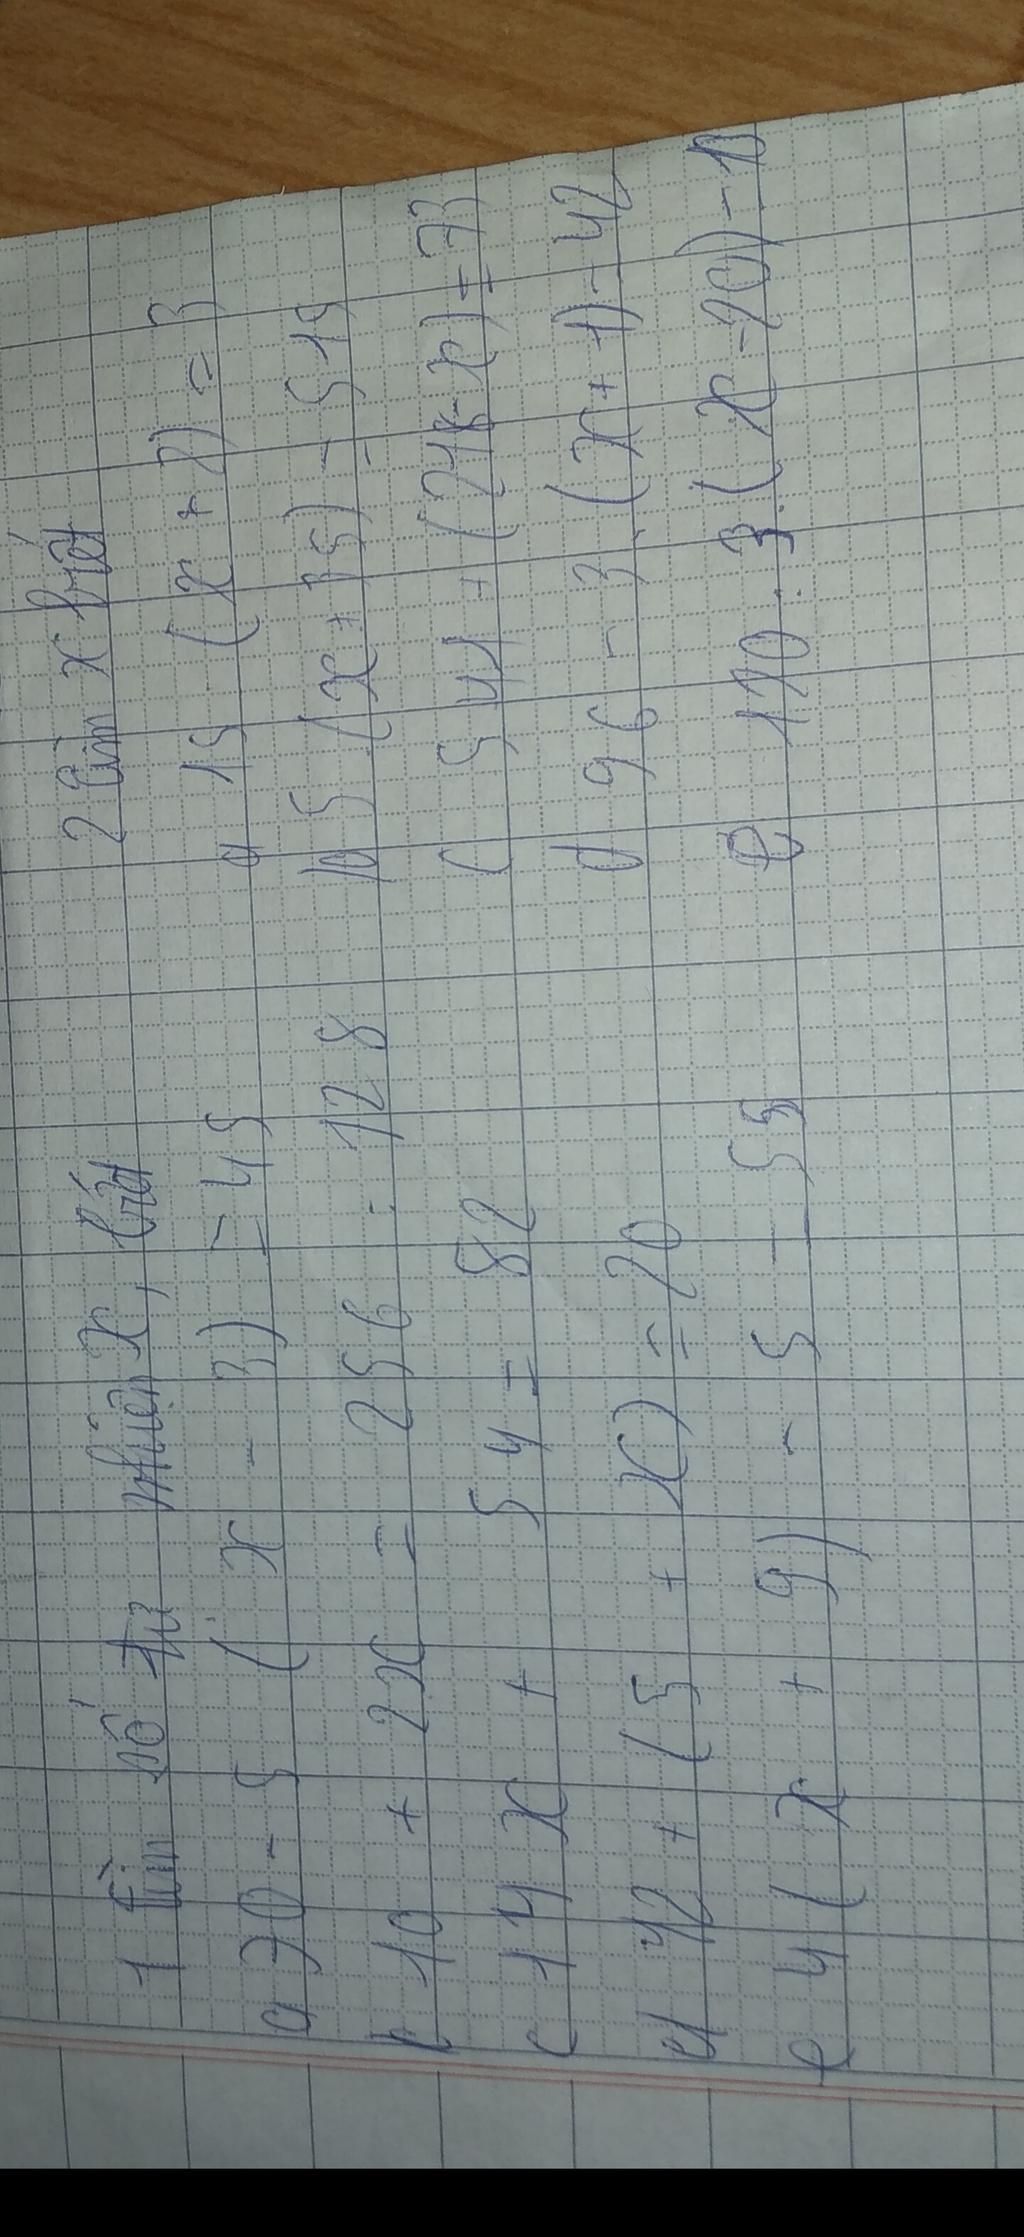 1 tìm số tự nhiên x, biết
a 70 - 5 ( x - 3) = 45
b 10 + 2x = 256 : 128
c 14 x + 54 = 82
d 42 + (5 + x) = 20
e 4 ( x + 9) - 5 = 55
2 tìm x biết
a 15 (x + 2) = 3
b 5 (x + 35) = 515
c 541 + (218 - x) = 73
d 96 - 3 . (x + 1) = 42
e 120 : 3 . (x - 20) - 10